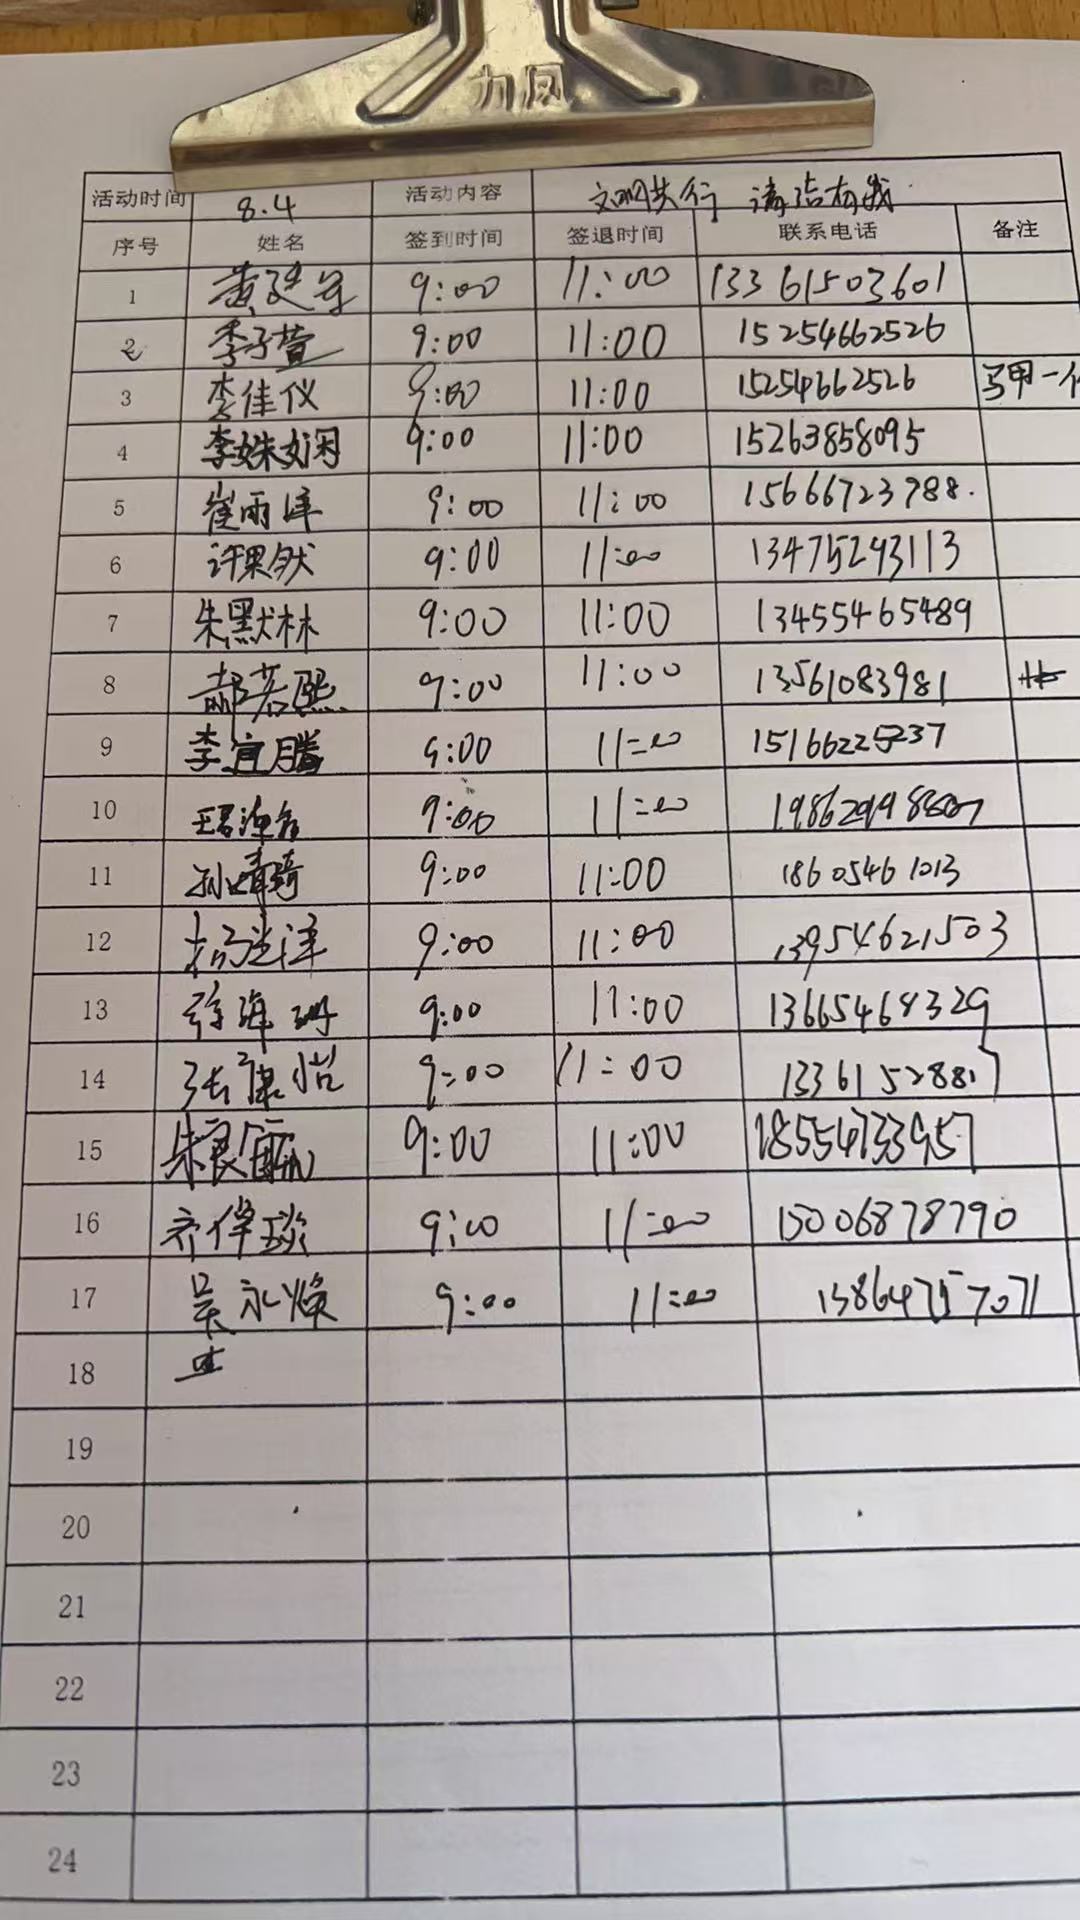 力风
活动时间 8.4 活动内容 文明共行 清洁有我
序号 姓名 签到时间 签退时间 联系电话 备注
1 9:00 11:00 13361503601
2 李子萱 9:00 11:00 15254662526
3 李佳仪 9:00 11:00 15254662526 马甲一件
4 李姝娴 9:00 11:00 15263858095
5 崔雨泽 9:00 11:00 15666723788.
6 许果然 9:00 11:00 13475293113
7 朱默林 9:00 11:00 13455465489
8 郝若熙 9:00 11:00 13561083981
9 李宜腾 9:00 11:00 15166225237
10 9:00 11:00
11 孙婧琦 9:00 11:00 18605461013
12 9:00 11:00 13954621503
13 徐海珊 9:00 11:00 13665468329
14 张康怡 9:00 11:00 13361528817
15 9:00 11:00 18554733957
16 齐倖琰 9:00 11:00 15006878790
17 吴永焕 9:00 11:00 13864757071
18
19
20
21
22
23
24